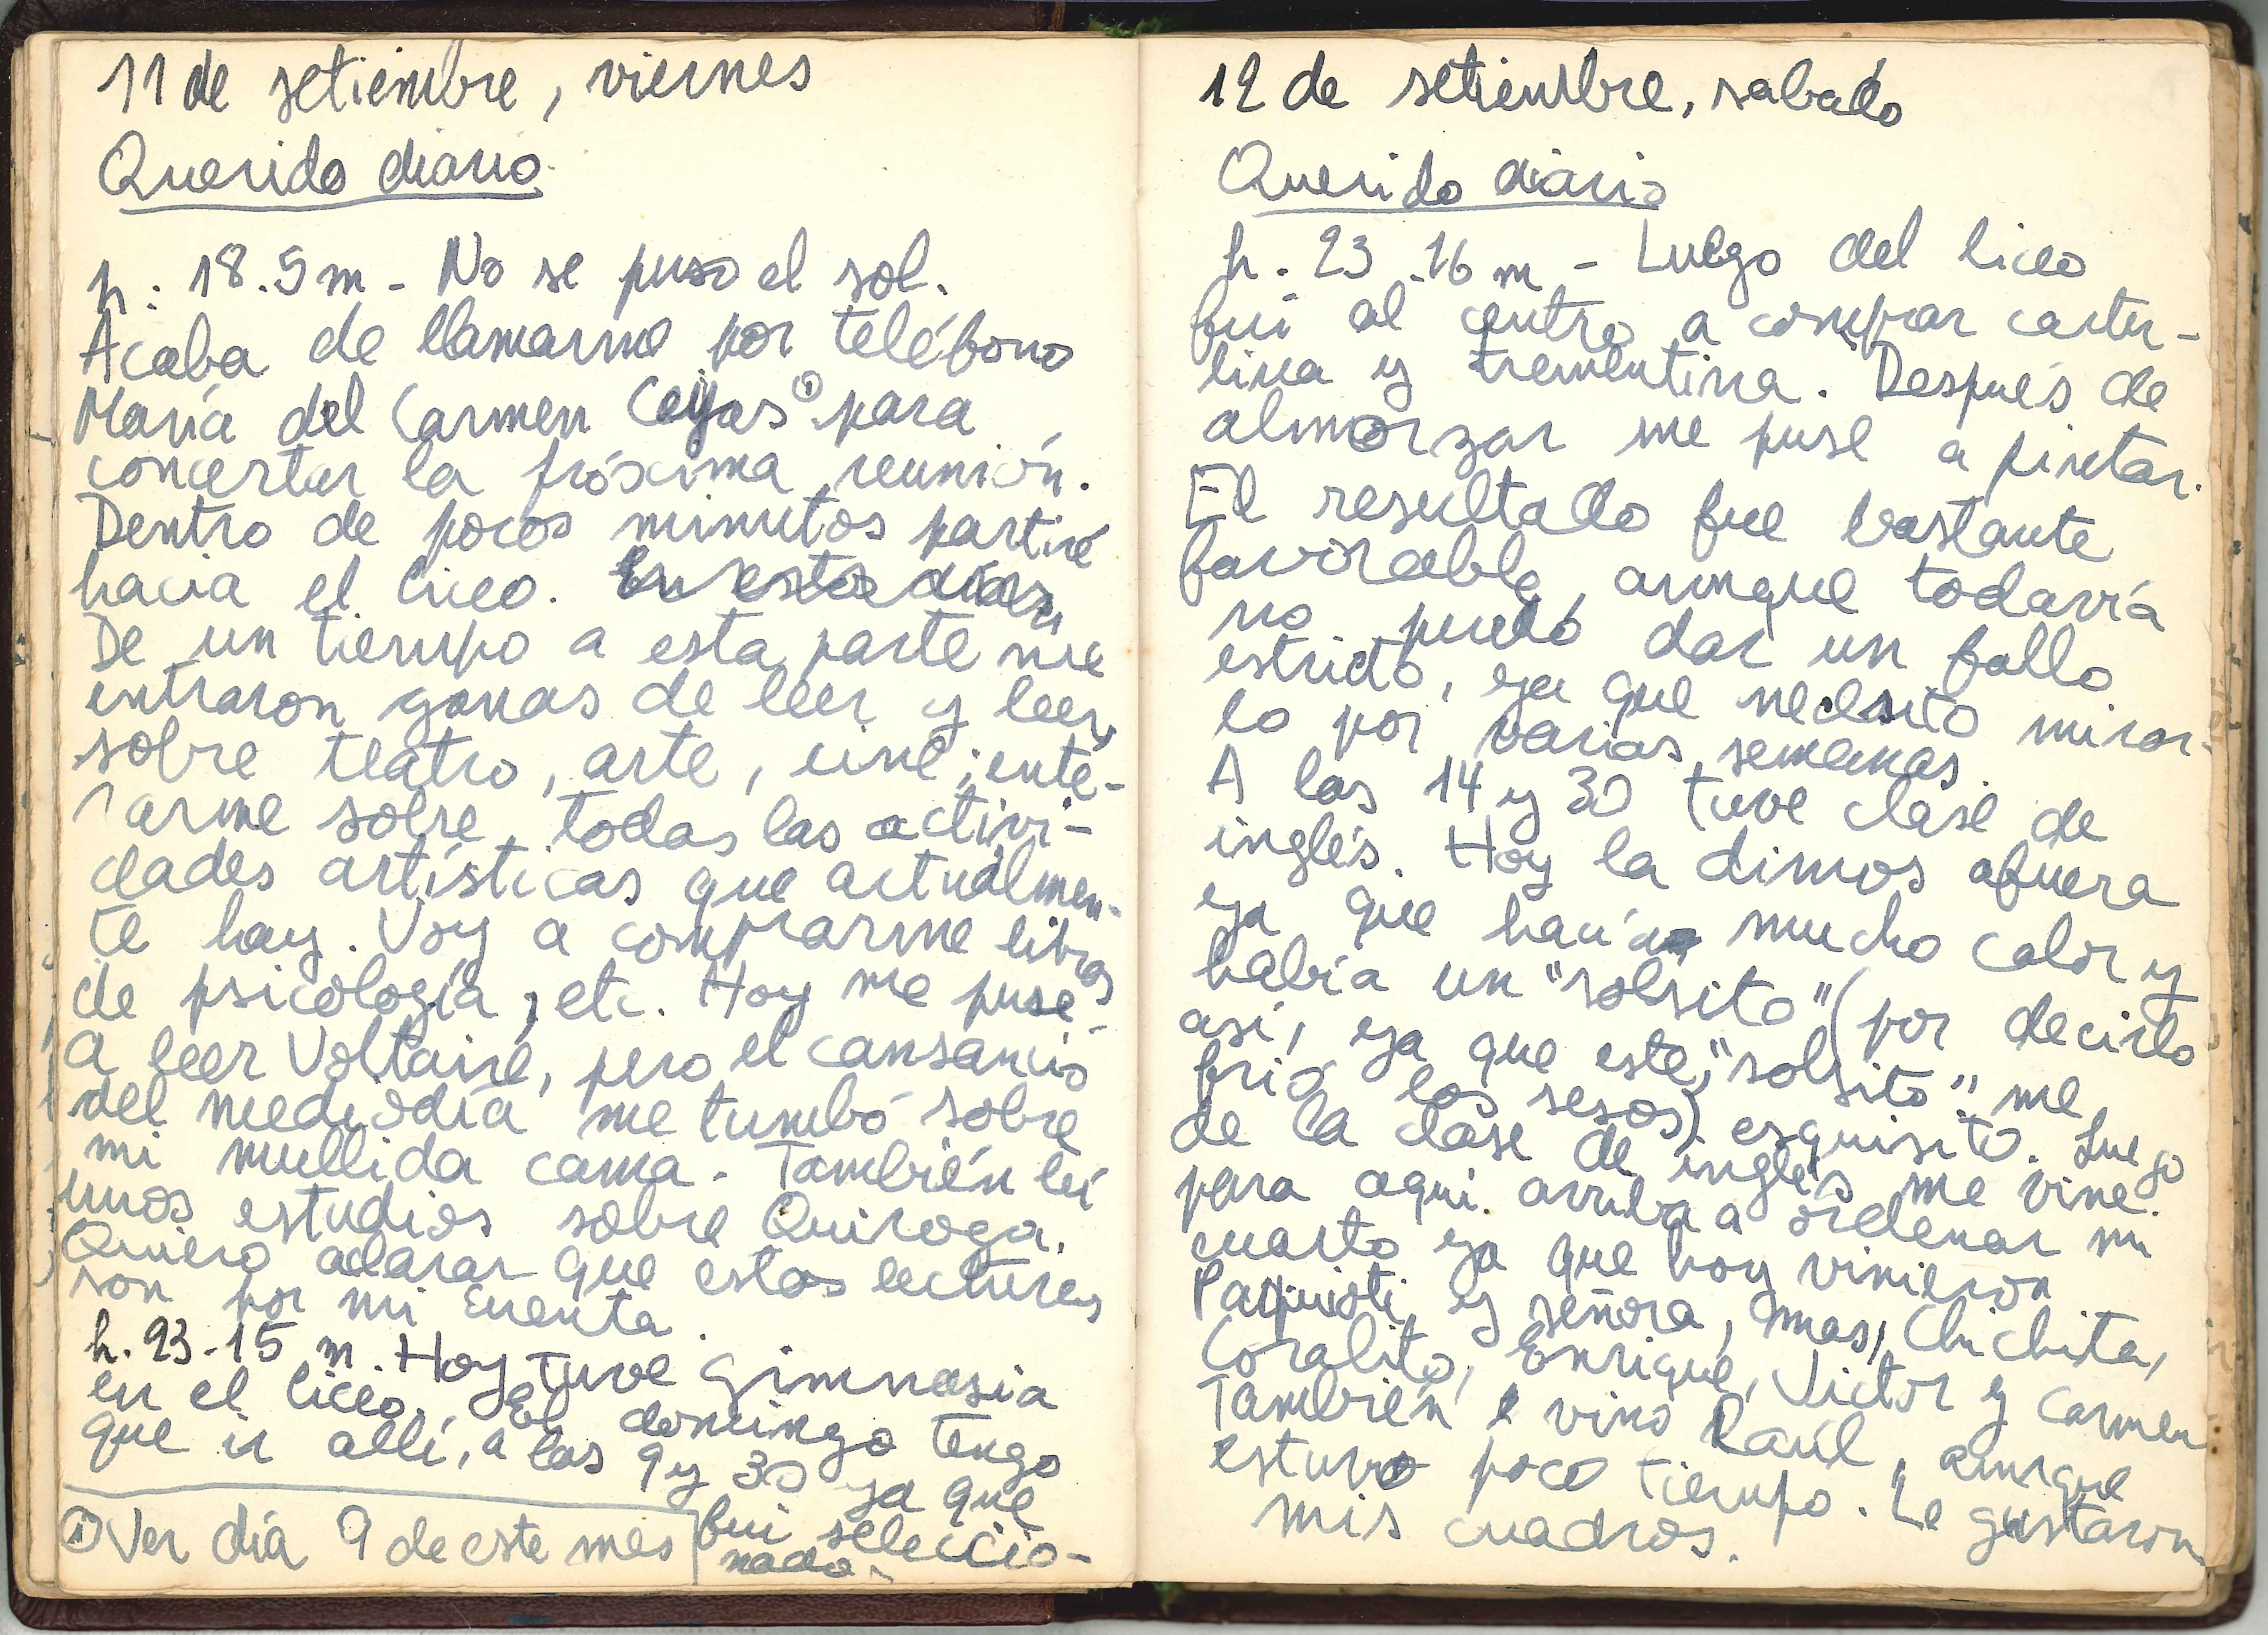 11 de setiembre, viernes
Querido diario
h: 18.5 m - No se puso el sol.
Acaba de llamarme por teléfono
María del Carmen Ceijas ① para
concertar la próxima reunión.
Dentro de pocos minutos partiré
hacia el liceo. En estos días
De un tiempo a esta parte me
entraron ganas de leer y leer,
sobre teatro, arte, cine; ente-
rarme sobre todas las activi-
dades artísticas que actualmen-
te hay. Voy a comprarme libros
de psicología, etc. Hoy me puse
a leer Voltaire, pero el cansancio
del mediodía me tumbó sobre
mi mullida cama. También leí
unos estudios sobre Quiroga.
Quiero aclarar que estas lecturas
son por mi cuenta.
h. 23-15 m. Hoy tuve gimnasia
en el liceo. El domingo tengo
que ir allí, a las 9 y 30 ya que
fui seleccio-
nada.
① Ver día 9 de este mes
12 de setiembre, sabado
Querido diario
h. 23.16 m - Luego del liceo
fui al centro a comprar cartu-
lina y trementina. Después de
almorzar me puse a pintar.
El resultado fue bastante
favorable, aunque todavía
no puedo dar un fallo
estricto, ya que necesito mirar-
lo por varias semanas.
A las 14 y 30 tuve clase de
inglés. Hoy la dimos afuera
ya que hacía mucho calor y
había un "solsito" (por decirlo
así, ya que este "solsito" me
frió los sesos) esquisito. Luego
de la clase de inglés me vine
para aquí arriba a ordenar mi
cuarto ya que hoy vinieron
y señora, mas, Chichita,
Coralito, Enrique, Victor y Carmen
También vino Raúl, aunque
estuvo poco tiempo. Le gustaron
mis cuadros.